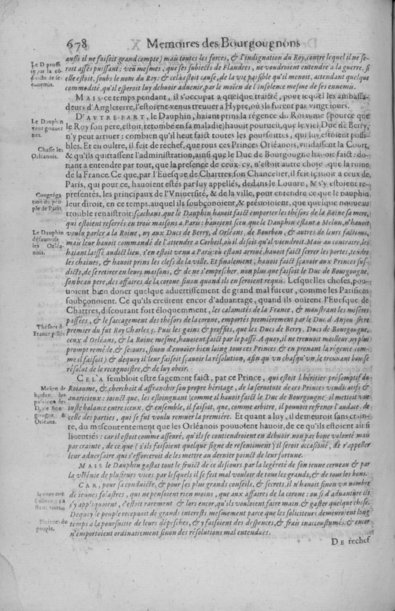 678 Memoires des Bourgougnons
aussi il ne faisoit estat, mais toutes les forces, & l'indignation du Roy, contre lequel il ne se-
roit assés puissant: veu mesmes, que ses subjects de Flandres, ne voudroient entendre à la guerre, si
elle estoit, soubs le nom du Roy: & cela estoit cause, de la vie paisible qu'il menoit, attendant quelque
commodité, qu'il esperoit luy debuoir aduenir, par le moien de l'insolence mesme de ses ennemis.
MAIS ce temps pendant, il s'occupat a quelque traicté, pour lequel les ambassa-
deurs d'Angleterre, l'estoient venus treuuer a Hypre, où ils furent par vingt jours.
D'AUTRE PART, le Dauphin, haiant prins la regence du Royaume (pource que
le Roy son pere, estoit retombé en sa maladie) hauoit poursuit, que le viel Duc de Berry,
n'y peut arriuer: combien qu'il heut faict toutes les poursuittes, qui luy estoient possi-
bles. Et en oultre, il feit de rechef, que tous ces Princes Orleanois, vuidassent la Court,
& qu'ils quittassent l'administration, ausi que le Duc de Bourgougne hauoit faict: don-
nant a entendre par tout, que la presence de ceux cy, n'estoit autre chose, que la ruine
de la France. Ce que, par l'Euesque de Chartres, son Chancelier, il feit jcy sçauoir a ceux de
Paris, qui pour ce, hauoient estés par luy appelés, dedans le Louure, & y estoient re-
presentés, les principaux de l'Vniuersité, & de la ville, pour entendre ce que le Dauphin,
leur diroit, en ce temps, auquel ils soubçonoient, & presentoient, que quelque nouueau
trouble renaistroit: sçachans, que le Dauphin hauoit faict emporter les thresors de la Reine sa mere,
qui estoient reservés en trois maisons a Paris: haiant sceu que le Dauphin estant a Melun, n'hauoit
voulu parler a la Reine, ny aux Ducs de Berry, d'Orleans, de Bourbon, & autres de leurs factions,
mais leur hauoit commandé de l'attendre a Corbeil, où il disoit qu'il viendroit. Mais au contraire, les
haiant laissé audict lieu, s'en estoit venu a Paris: où estant arriué, hauoit faict serrer les portes, tendre
les chaines, & hauoit prins les clefs de la ville. Et finalement, hauoit faict sçauoir aux Princes sus-
dicts, de se retirer en leurs maisons, & de ne s'empescher, non plus que faisoit le Duc de Bourgougne,
son beau pere, des affaires de la corone sinon quand ils en seroient requis. Lesquelles choses, pou-
uoient bien donner quelque aduertissement de grand mal futeur, comme les Parisiens
soubçonoient. Ce qu'ils creürent encor d'aduantage, quand ils ouïrent l'Euesque de
Chartres, discourant fort eloquemment, les calamités de la France, & monstrant les miseres
passées, & le saccagement des thresors de la corone, emportés premierement par le Duc d'Anjou (frere
premier du feu Roy Charles 5. Puis les gains & proffits, que les Ducs de Berry, Bourgougne,
ceux d'Orleans, & la Reine mesme, hauoient faict par le passé. A quoy, il ne treuuoit meilleur ny plus
prompt remede, & secours, sinon d'enuoier bien loing tous ces Princes & en prenant la regence (com-
me il faisoit) & de quoy il leur faisoit sçauoir la resolution, afin qu'vn chascun, le treuuant bon se
resolut de le recognoistre, & de luy obeir.
CELA sembloit estre sagement faict, par ce Prince, qui estoit l'heritier presomptif du
Royaume, & cherchoit d'affranchir son propre heritage, de la seruitude de ces Princes vieulx ausés &
auaricieux: joinct que, les esloignant (comme il hauoit faict le Duc de Bourgougne) il mettoit vne
juste balance entre iceux, & ensemble, il faisoit, que, comme arbitre, il pouuoit refrener l'audace de
celle des parties, qui se fut voulu remuer la premiere. Et quant a luy, il demeuroit sans crain-
te, du mescontentement que les Orleanois pouuoient hauoir, de ce qu'ils estoient ainsi
licentiés: car il estoit comme asseuré, qu'ils se contiendroient en debuoir non par bone volonté mais
par crainte, de ce que (s'ils faisoient quelque signe de ressentiment) il seroit occasioné, de r'appeller
leur aduersaire qui s'efforceroit de les mettre au dernier point de leur fortune.
MAIS le Dauphin gastat tout le fruict de ce discours par la legereté de son jeune cerueau & par
la vehemence de plusieurs vices: par lesquels il se feit mal voulair de tous les grands, & de tous les bons.
CAR, pour sa conduicte, & pour ses plus grands conseils, & secrets, il n'hauoit sinon vn nombre
de jeunes folastres, qui ne pensoient rien moins, que aux affaires de la corone: ou si d'auanture ils
s'y appliquoient, c'estoit rarement & lors encor, qu'ils vouloient faire main & gaster quelque chose.
Dequoy le peuple receupuoit de grands interests mesmement parce que les soliciteurs demeuroient long
temps a la poursuitte de leurs depesches, & y faisoient des despences, & frais inaccoustumés. & encor
n'emportoient ordinairement sinon des resolutions mal entendues.
DE rechef
Le Dauphin
Chasse les
Orleanois.
Le Dauphin
Thresors de
France pillés